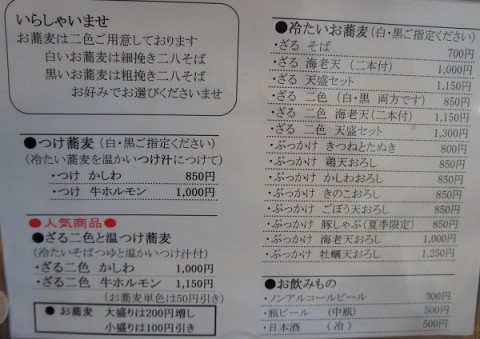 いらしゃいませ
お蕎麦は二色ご用意しております
白いお蕎麦は細挽き二八そば
黒いお蕎麦は粗挽き二八そば
お好みでお選びくださいませ
●つけ蕎麦(白・黒ご指定ください)
(冷たい蕎麦を温かいつけ汁につけて)
・つけ かしわ 850円
・つけ 牛ホルモン 1,000円
●人気商品●
●ざる二色と温つけ蕎麦
(冷たいそばつゆと温かいつけ汁付)
・ざる二色 かしわ 1,000円
・ざる二色 牛ホルモン 1,150円
(お蕎麦単色は50円引き)
●お蕎麦 大盛りは200円増し
小盛りは100円引き
●冷たいお蕎麦(白・黒ご指定ください)
・ざる そば 700円
・ざる 海老天(二本付) 1,000円
・ざる 天盛セット 1,150円
・ざる 二色(白・黒 両方です) 850円
・ざる 二色 海老天(二本付) 1,150円
・ざる 二色 天盛セット 1,300円
・ぶっかけ きつねとたぬき 800円
・ぶっかけ 鶏天おろし 850円
・ぶっかけ かしわおろし 850円
・ぶっかけ きのこおろし 850円
・ぶっかけ ごぼう天おろし 850円
・ぶっかけ 豚しゃぶ(夏季限定) 850円
・ぶっかけ 海老天おろし 1,000円
・ぶっかけ 牡蠣天おろし 1,250円
●お飲みもの
・ノンアルコールビール 300円
・瓶ビール (中瓶) 500円
・日本酒 (冷) 500円